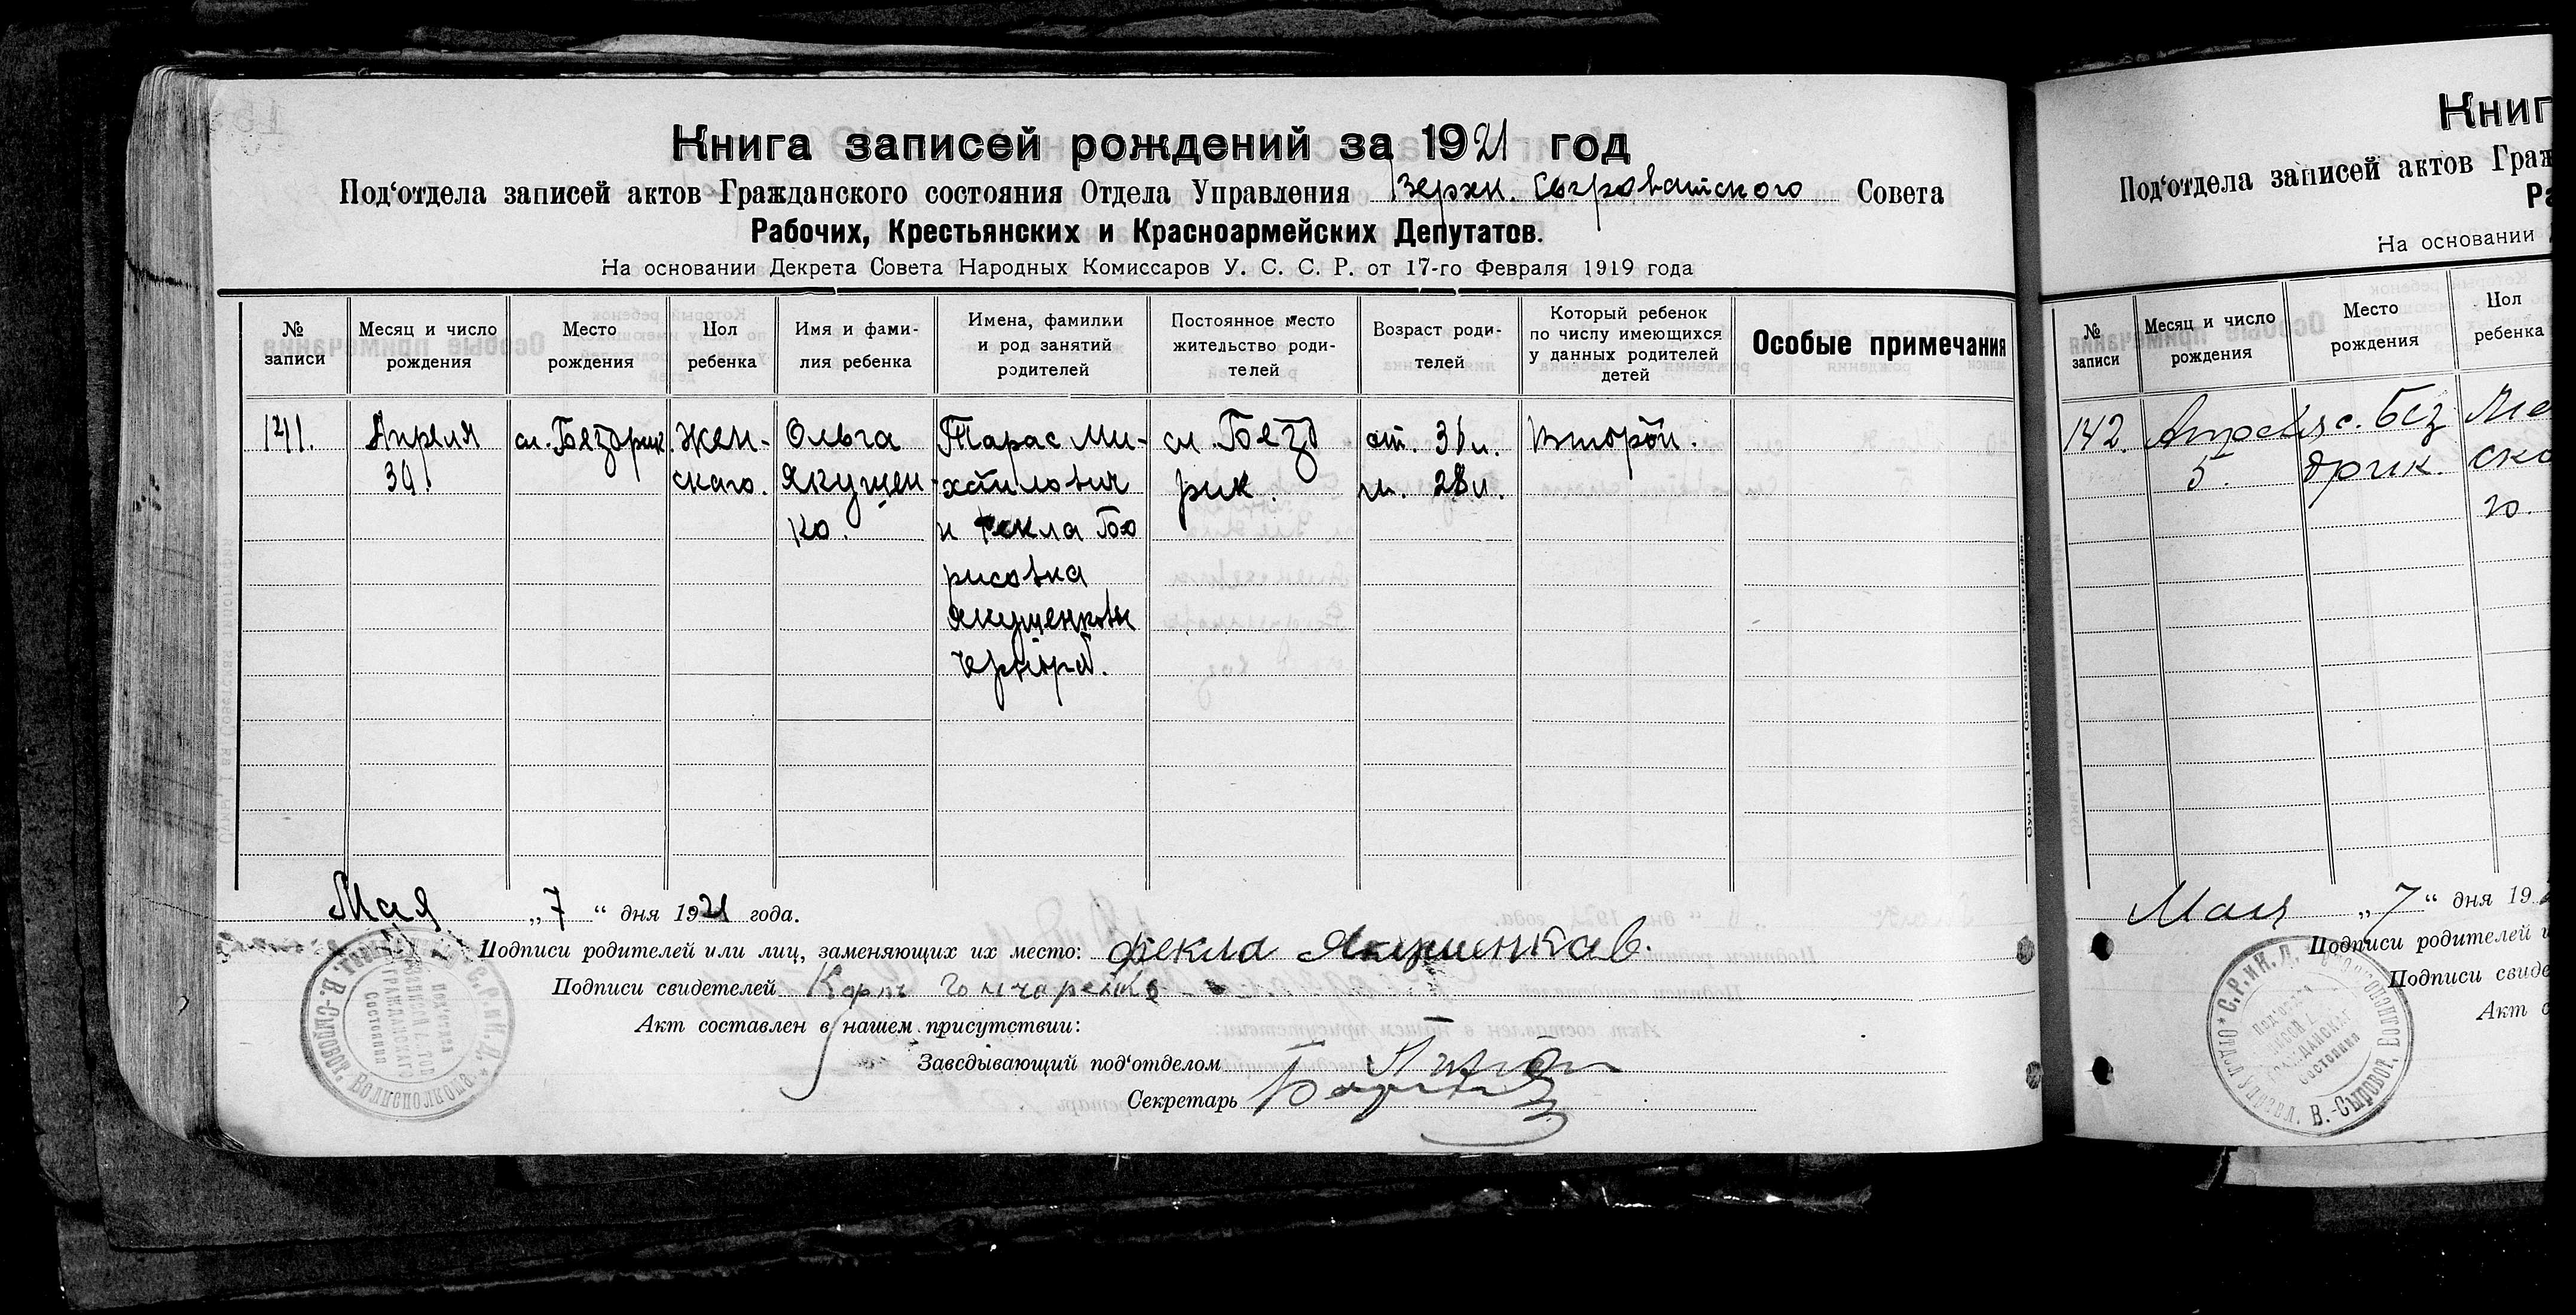 Книга записей рождений за 1921 год
Под‘отдела записей актов Гражданского состояния Отдела Управления Верхн. Сыроватского Совета
Рабочих, Крестьянских и Красноармейских Депутатов.
На основании Декрета Совета Народных Комиссаров У. С. С. Р. от 17-го Февраля 1919 года
№ записи
Месяц и число рождения
Место рождения
Пол ребенка
Имя и фами-
лия ребенка
Имена, фамилии
и род занятий
родителей
Постоянное место
жительство роди-
телей
Возраст роди-
телей
Который ребенок
по числу имеющихся
у данных родителей
детей
Особые примечания
141.
Апреля
30.
сл. Бездрик
Жен-
скаго.
Ольга
Якушен-
ко.
Тарас Ми-
хайлович
и Фекла Бо
рисовна
Якушенковы
сл. Безд
рик.
от. 31 л.
м. 28 л.
Второй.
Мая „7“ дня 1921 года.
Подписи родителей или лиц, заменяющих их место: Фекла Якушенкав.
Подписи свидетелей Карпъ Гончаренко
Акт составлен в нашем присутствии:
Заведывающий под‘отделом
Секретарь
Книг
Под‘отдела записей актов Граж
Ра
На основании
№ записи
Месяц и число рождения
Место рождения
Пол ребенка
142.
Апреля
5.
с. Без
дрик.
Му
ско
го.
Мая „7“ дня 19
Подписи родителей и
Подписи свиде
Акт с